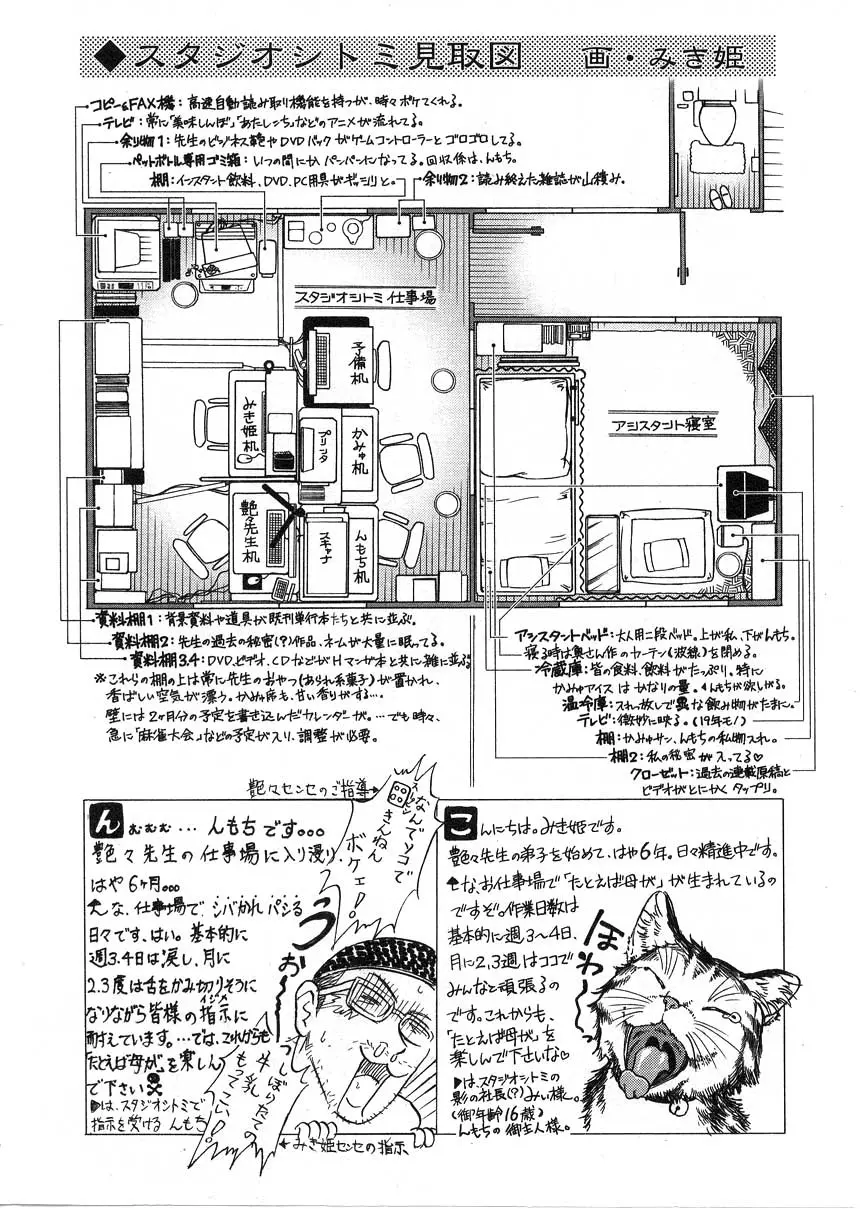 ◆スタジオシトミ見取図　画・みき姫
コピー&FAX機：高速自動読み取り機能を持つが、時々ボケてくれる。
テレビ：常に「美味しんぼ」「あたしンち」などのアニメが流れてる。
余り物1：先生のビジネス鞄やDVDパックがゲームコントローラーとゴロゴロしてる。
ペットボトル専用ゴミ箱：いつの間にかパンパンになってる。回収係は、んもち。
棚：インスタント飲料、DVD、PC用具がギッシリと。
余り物2：読み終えた雑誌が山積み。
スタジオシトミ仕事場
予備机
みき姫机
プリンタ
かみゅ机
艶々先生机
スキャナ
んもち机
アシスタント寝室
資料棚1：背景資料や道具が既刊単行本たちと共に並ぶ。
資料棚2：先生の過去の秘密(?)作品、ネームが大量に眠ってる。
資料棚3.4：DVD、ビデオ、CDなどがHマンガ本と共に雑に並ぶ。
※これらの棚の上は常に先生のおやつ(あられ系菓子)が置かれ、
香ばしい空気が漂う。かみゅ席も、甘い香りがする…。
壁には2ヶ月分の予定を書き込んだカレンダーが。…でも時々、
急に「麻雀大会」などの予定が入り、調整が必要。
アシスタントベッド：大人用二段ベッド。上が私、下がんもち。
寝る時は奥さん作のカーテン(波線)を閉める。
冷蔵庫：皆の食料、飲料がたっぷり。特に
かみゅアイスはかなりの量。んもちが欲しがる。
温冷庫：スれっ放しで異な飲み物がたまに。
テレビ：微妙に映る。(19年モノ)
棚：かみゅサン、んもちの私物入れ。
棚2：私の秘密が入ってる♡
クローゼット：過去の連載原稿と
ビデオがとにかくタップリ。
艶々センセのご指導
なんでソコで
きんねん
ボケェ！
んおむむ…んもちです。。。
艶々先生の仕事場に入り浸り、
はや6ヶ月。。。
な、仕事場でシバかれパシる
日々です、はい。基本的に
週3.4日は戻し、月に
2.3度は舌をかみ切りそうに
なりながら皆様の指示に
イジメ
耐えています。…では、これからも
「たとえば母が」を楽しんで
で下さい☠
▶は、スタジオシトミで
指示を受ける んもち
うおー
しぼりたての
牛乳
もってこい！
←みき姫センセの指示
こんにちは。みき姫です。
艶々先生の弟子を始めて、はや6年。日々精進中です。
な、お仕事場で「たとえば母が」が生まれているの
ですぞ。作業日数は
基本的に週3〜4日、
月に2,3週はココで
みんなと頑張るの
です。これからも、
「たとえば母が」を
楽しんで下さいな♡
▶は、スタジオシトミの
影の社長(?)みぃ様。
(御年齢16歳)
んもちの御主人様。
ほわ〜